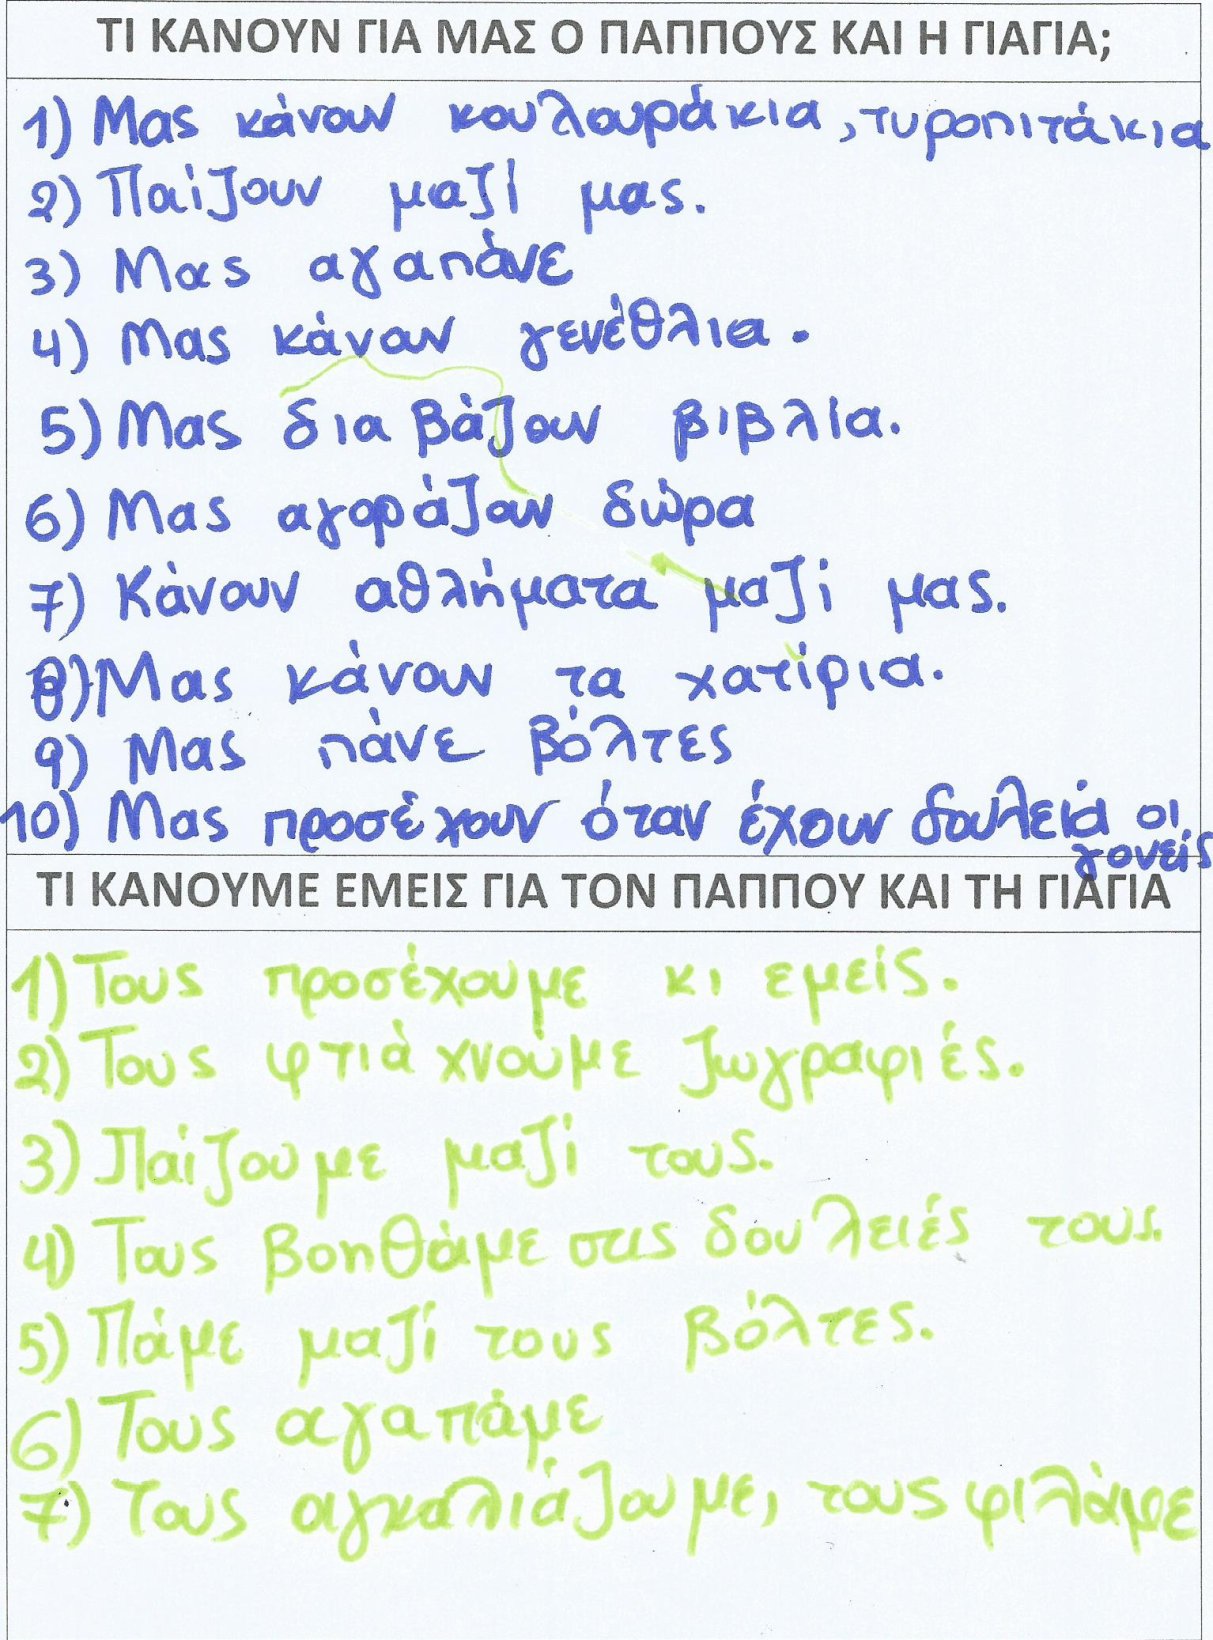 ΤΙ ΚΑΝΟΥΝ ΓΙΑ ΜΑΣ Ο ΠΑΠΠΟΥΣ ΚΑΙ Η ΓΙΑΓΙΑ;
1) Μας κάνουν κουλουράκια, τυροπιτάκια
2) Παίζουν μαζί μας.
3) Μας αγαπάνε
4) Μας κάνουν γενέθλια.
5) Μας διαβάζουν βιβλία.
6) Μας αγοράζουν δώρα
7) Κάνουν αθλήματα μαζί μας.
8) Μας κάνουν τα χατίρια.
9) Μας πάνε βόλτες
10) Μας προσέχουν όταν έχουν δουλειά οι
γονείς
ΤΙ ΚΑΝΟΥΜΕ ΕΜΕΙΣ ΓΙΑ ΤΟΝ ΠΑΠΠΟΥ ΚΑΙ ΤΗ ΓΙΑΓΙΑ
1) Τους προσέχουμε κι εμείς.
2) Τους φτιάχνουμε ζωγραφιές.
3) Παίζουμε μαζί τους.
4) Τους βοηθάμε στις δουλειές τους.
5) Πάμε μαζί τους βόλτες.
6) Τους αγαπάμε
7) Τους αγκαλιάζουμε, τους φιλάμε